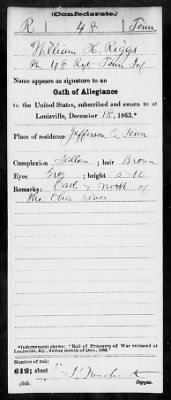 (Confederate.)
R 48 Tenn
William H. Riggs
Pt 48 Regt Tenn Inf
Name appears as signature to an
Oath of Allegiance
to the United States, subscribed and sworn to at
Louisville, December 18, 1863.*
Place of residence Jefferson Co Tenn
Complexion Sallow; hair Brown
Eyes Grey; height 5-10
Remarks: Oath & North of
the Ohio River
*Indorsement shows: "Roll of Prisoners of War released at
Louisville, Ky., during month of Dec., 1863."
Number of roll:
612; sheet
Copyist.